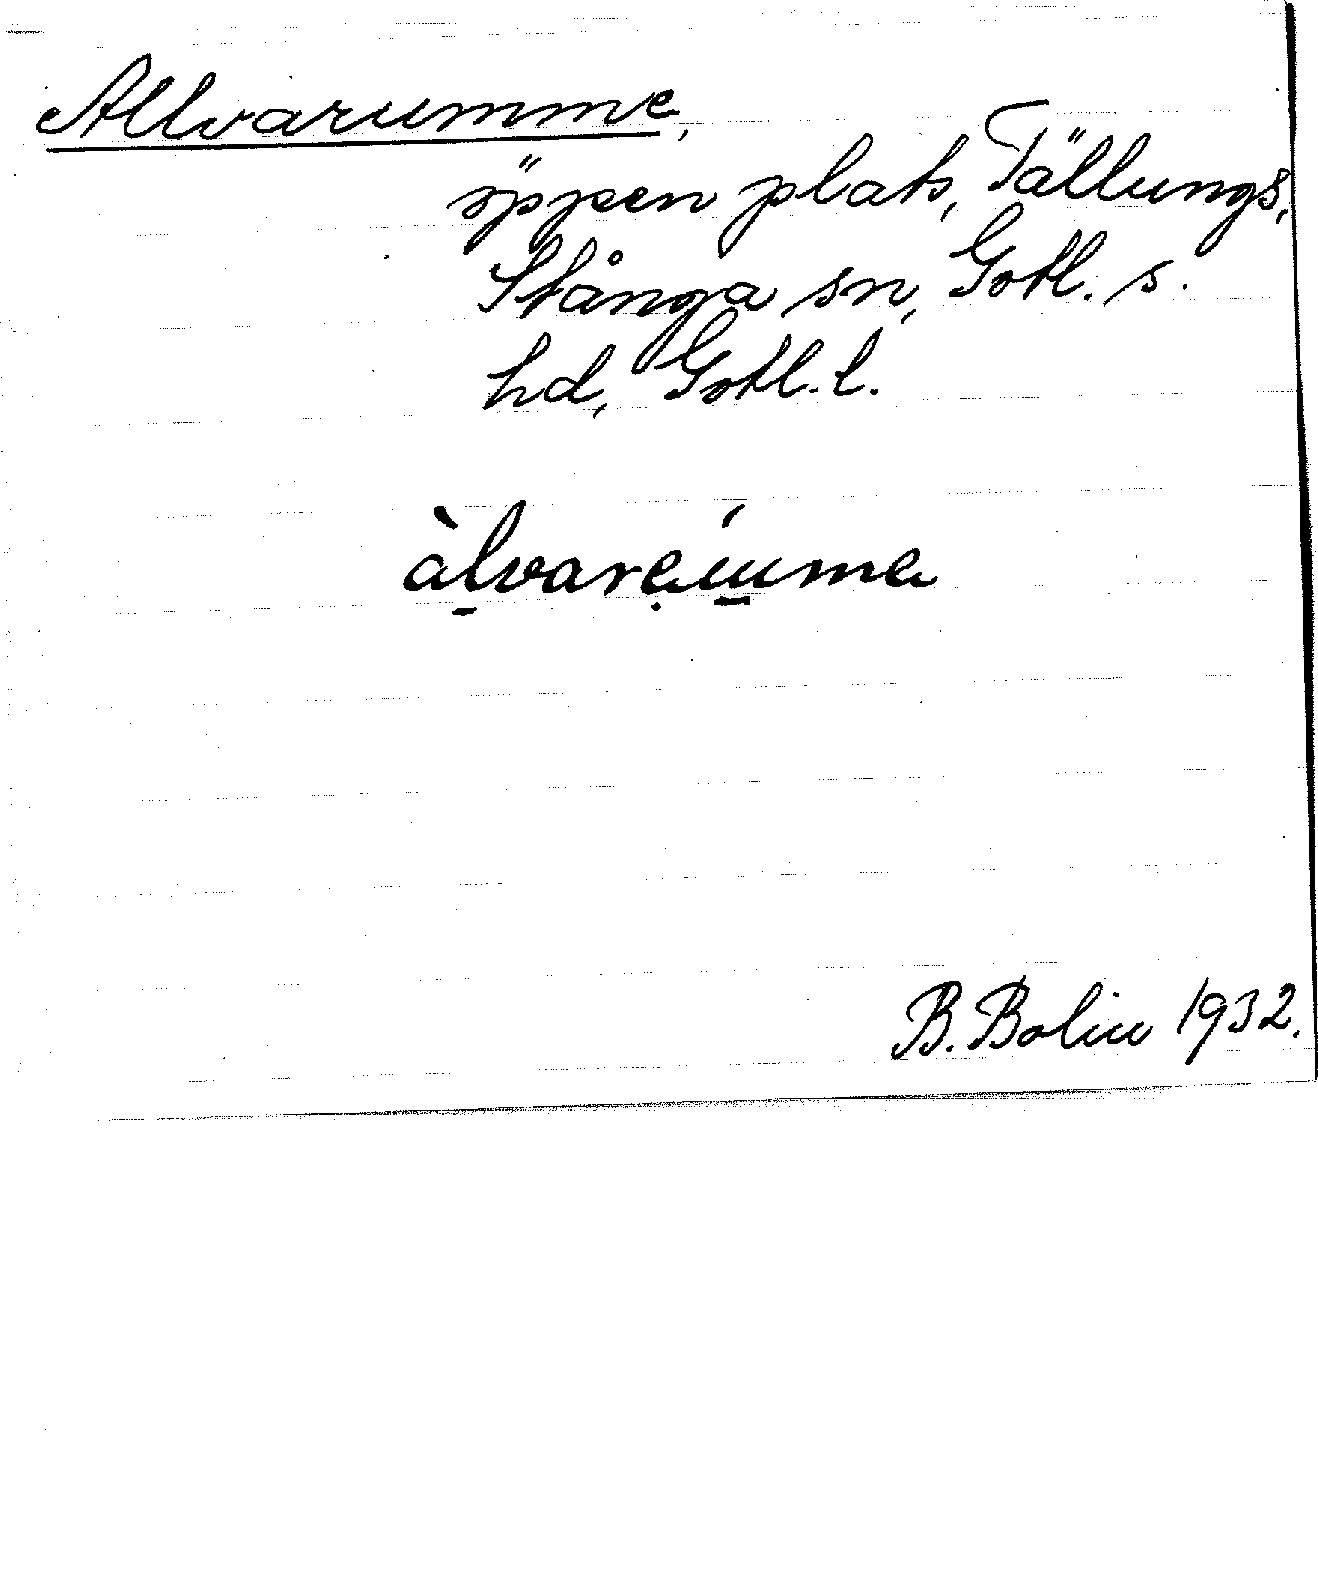 Allvarumme,
öppen plats, Tällungs,
Stånga sn, Gotl. s.
hd, Gotl. l.
àl̠varẹú̠mma
B. Bolin 1932.